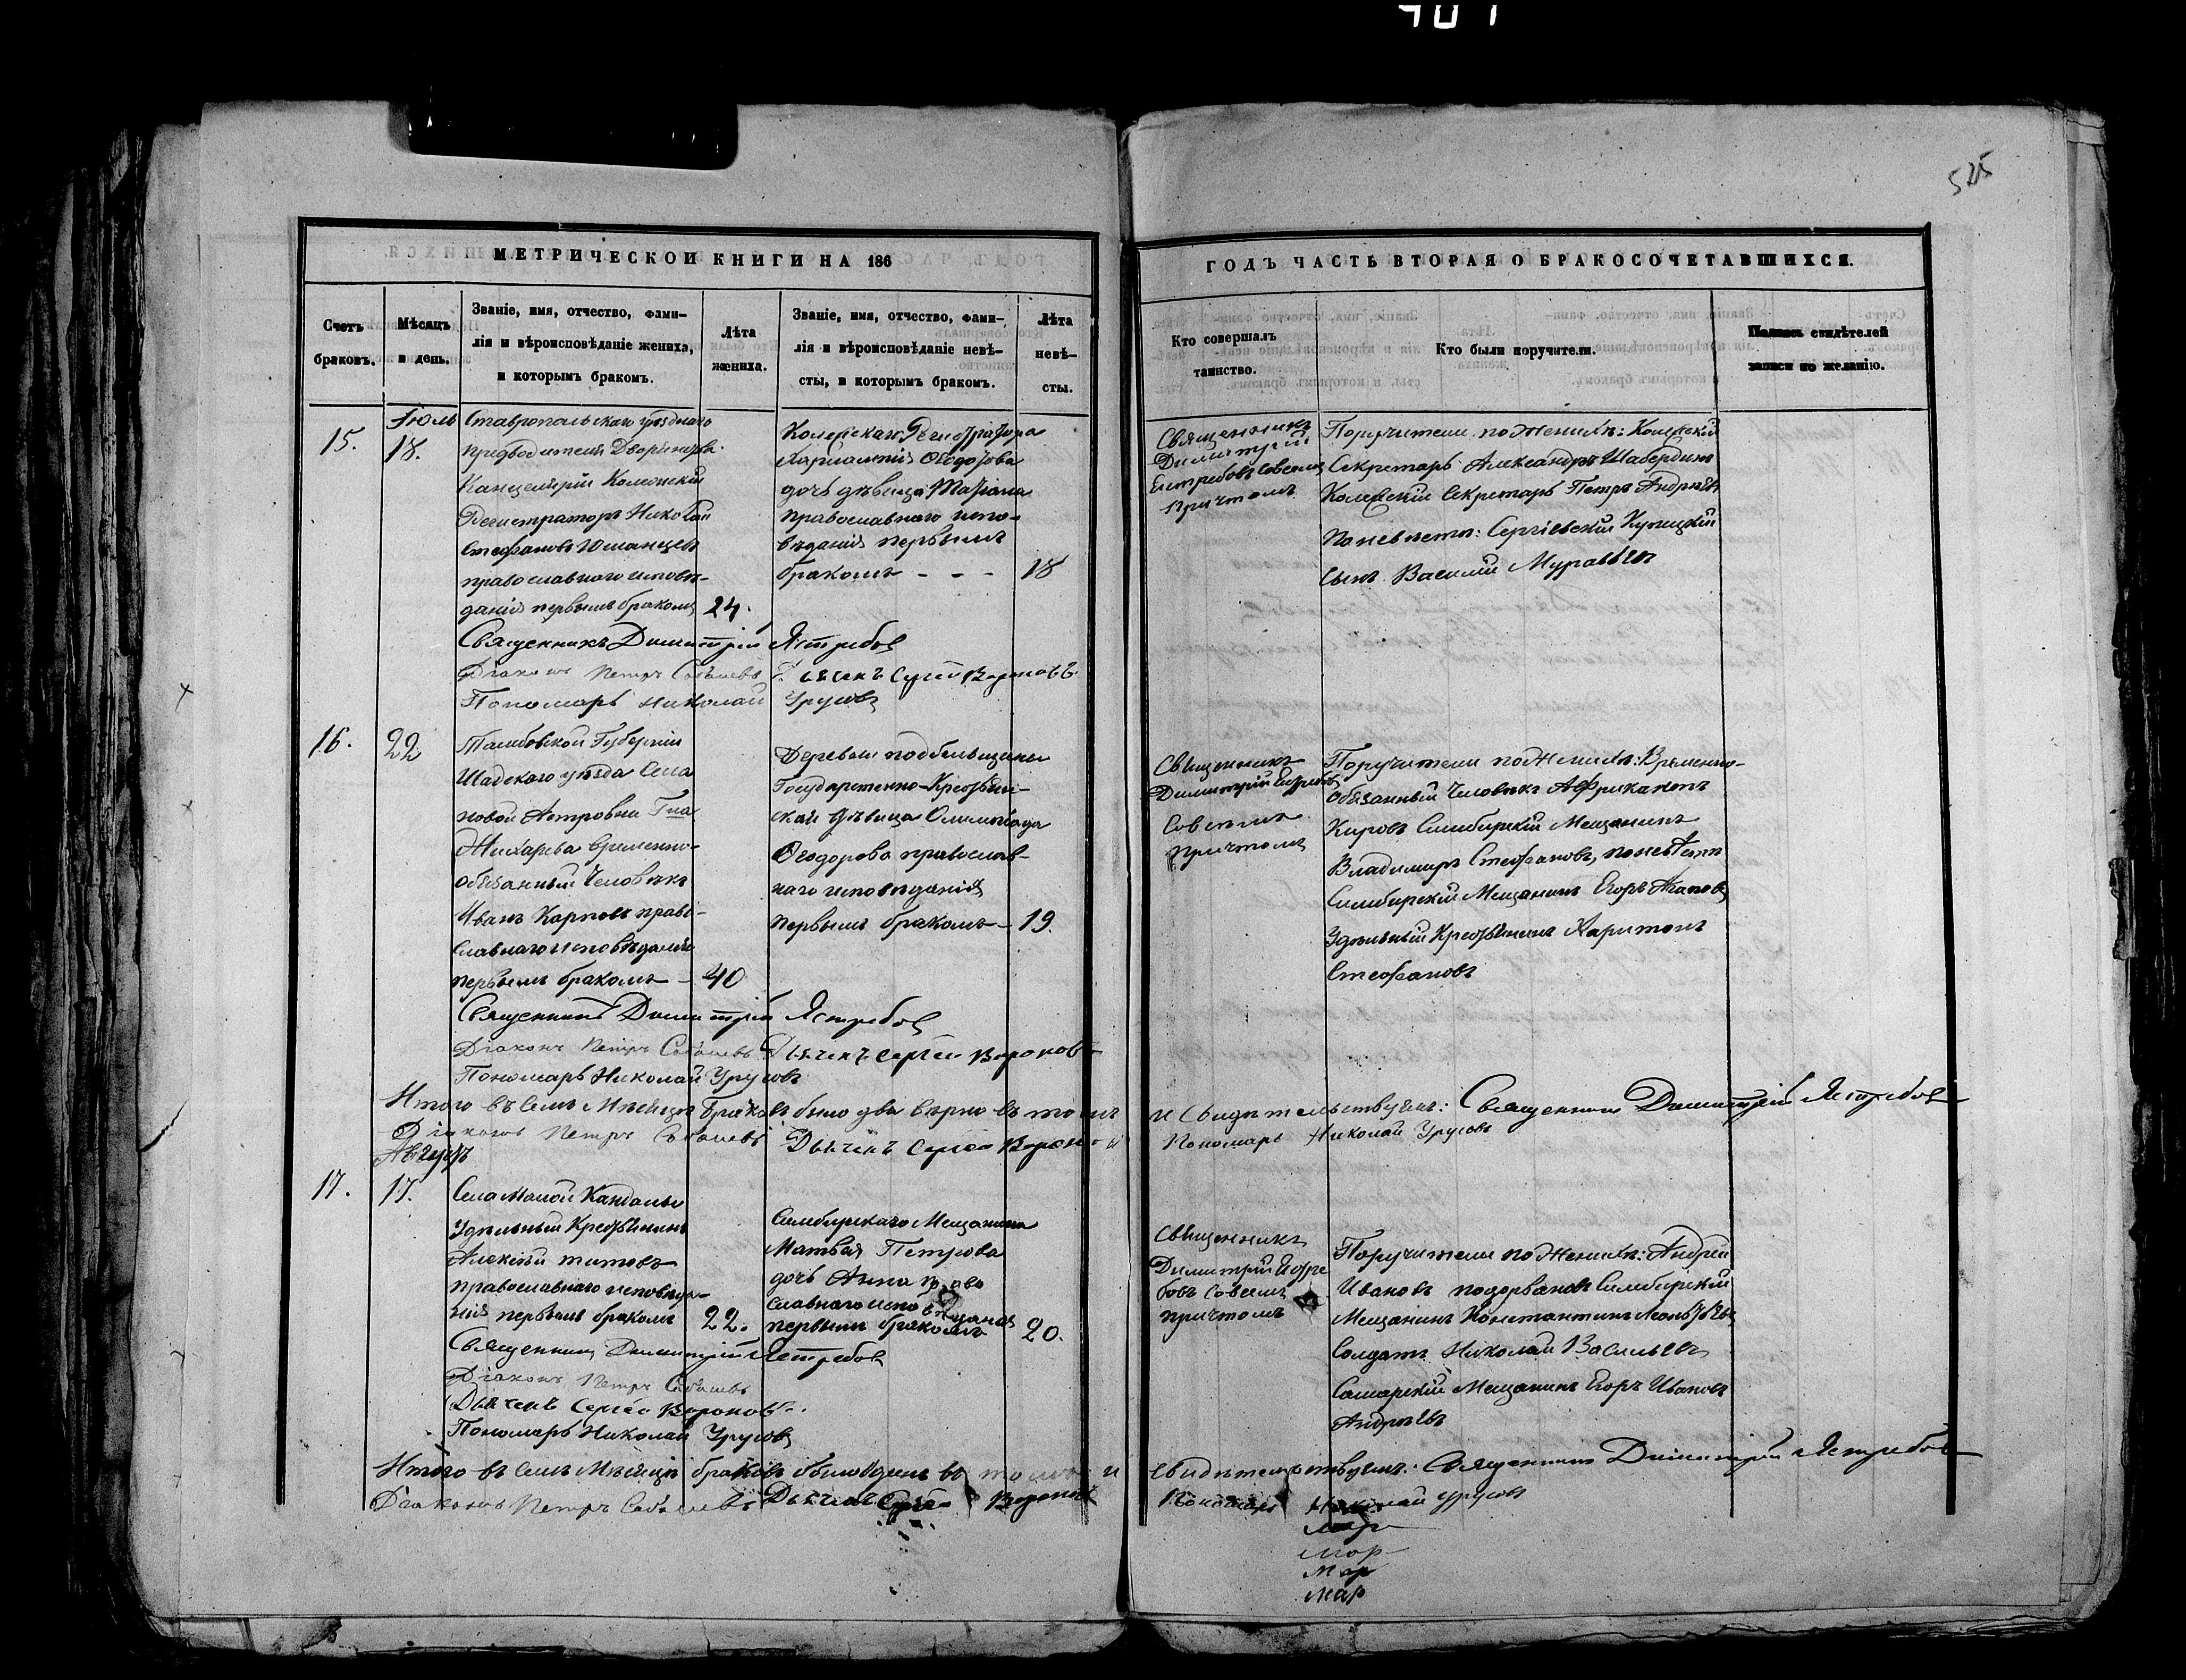 525
МЕТРИЧЕСКОЙ КНИГИ НА 186
ГОДЪ ЧАСТЬ ВТОРАЯ О БРАКОСОЧЕТАВШИХСЯ.
Счетъ
браковъ.
Мѣсяцъ
и день.
Званіе, имя, отчество, фами-
лія и вѣроисповѣданіе жениха,
и которымъ бракомъ.
Лѣта
жениха.
Званіе, имя, отчество, фами-
лія и вѣроисповѣданіе невѣ-
сты, и которымъ бракомъ.
Лѣта
невѣ-
сты.
Кто совершалъ
таинство.
Кто были поручители.
свидѣтелей
записи по желанію.
15.
Іюль
18.
Ставропольскаго уѣзднаго
предводителя Дворянства
Канцеляріи Колежскій
Регистраторъ Николай
Стефановъ Юманцевъ
православнаго исповѣ-
данія первымъ бракомъ
24.
Колежскаго Регистратора
Харлампія Ѳеодотова
дочь дѣвица Татіана
православнаго испо-
вѣданія первымъ
бракомъ - - -
18
Священникъ
Димитрій
Ястребовъ совсѣмъ
причтомъ
Поручители по женихѣ: Колежскій
Секретарь Александръ Шабердинъ
Колежскій Секретарь Петръ Андреевъ
По невѣстѣ: Сергіевскій Купецкій
сынъ Василій Муравьевъ
Священникъ Димитрій Ястребовъ
Діаконъ Петръ Дьячекъ Сергѣй Вороновъ
Пономарь Николай Урусовъ
16.
22
Тамбовской Губерніи
Шадскаго уѣзда Села
новой Петровки Гна
Жихарева временно-
обязанный Человѣкъ
Иванъ Карповъ право-
славнаго исповѣданія
первымъ бракомъ -
40
Деревни подбельщины
Государственно-Крестьян-
ская дѣвица Олимпіада
Ѳеодорова православ-
наго исповѣданія
первымъ бракомъ -
19.
Священникъ
Димитрій Ястребовъ
Совсѣмъ
причтомъ
Поручители по женихѣ: Временно-
обязанный Человѣкъ Африканъ
Симбирскій Мещанинъ
Владимиръ Стефановъ, по невѣстѣ
Симбирскій Мещанинъ Егоръ Агаповъ
Удѣльный Крестьянинъ Харитонъ
Стефановъ
Священникъ Димитрій Ястребовъ
Діаконъ Петръ Дьячекъ Сергѣй Вороновъ
Пономарь Николай Урусовъ
Итого въ семъ Мѣсяцѣ браковъ было два вѣрно въ томъ
и свидѣтельствуемъ: Священникъ Димитрій Ястребовъ
Діаконъ Петръ Дьячекъ Сергѣй Вороновъ
Пономарь Николай Урусовъ
Августъ
17.
17.
Села Малой Кандалы
Удѣльный Крестьянинъ
Алексѣй Титовъ
православнаго исповѣда-
нія первымъ бракомъ
22.
Симбирскаго Мещанина
Матвѣя Петрова
дочь Анна право
славнаго исповѣданія
первымъ бракомъ
20.
Священникъ
Димитрій Ястре
бовъ совсѣмъ
причтомъ
Поручители по женихѣ: Андрей
Ивановъ Симбирскій
Мещанинъ Константинъ Леонтьевъ
Солдатъ Николай Васильевъ
Самарскій Мещанинъ Егоръ Ивановъ
Андреевъ
Священникъ Димитрій Ястребовъ
Діаконъ Петръ
Дьячекъ Сергѣй Вороновъ.
Пономарь Николай Урусовъ
Итого въ семъ Мѣсяцѣ браковъ было одинъ въ томъ и
свидѣтельствуемъ: Священникъ Димитрій Ястребовъ
Діаконъ Петръ Дьячекъ Сергѣй Вороновъ
Пономарь Николай Урусовъ
Мар
Мар
Мар
Мар